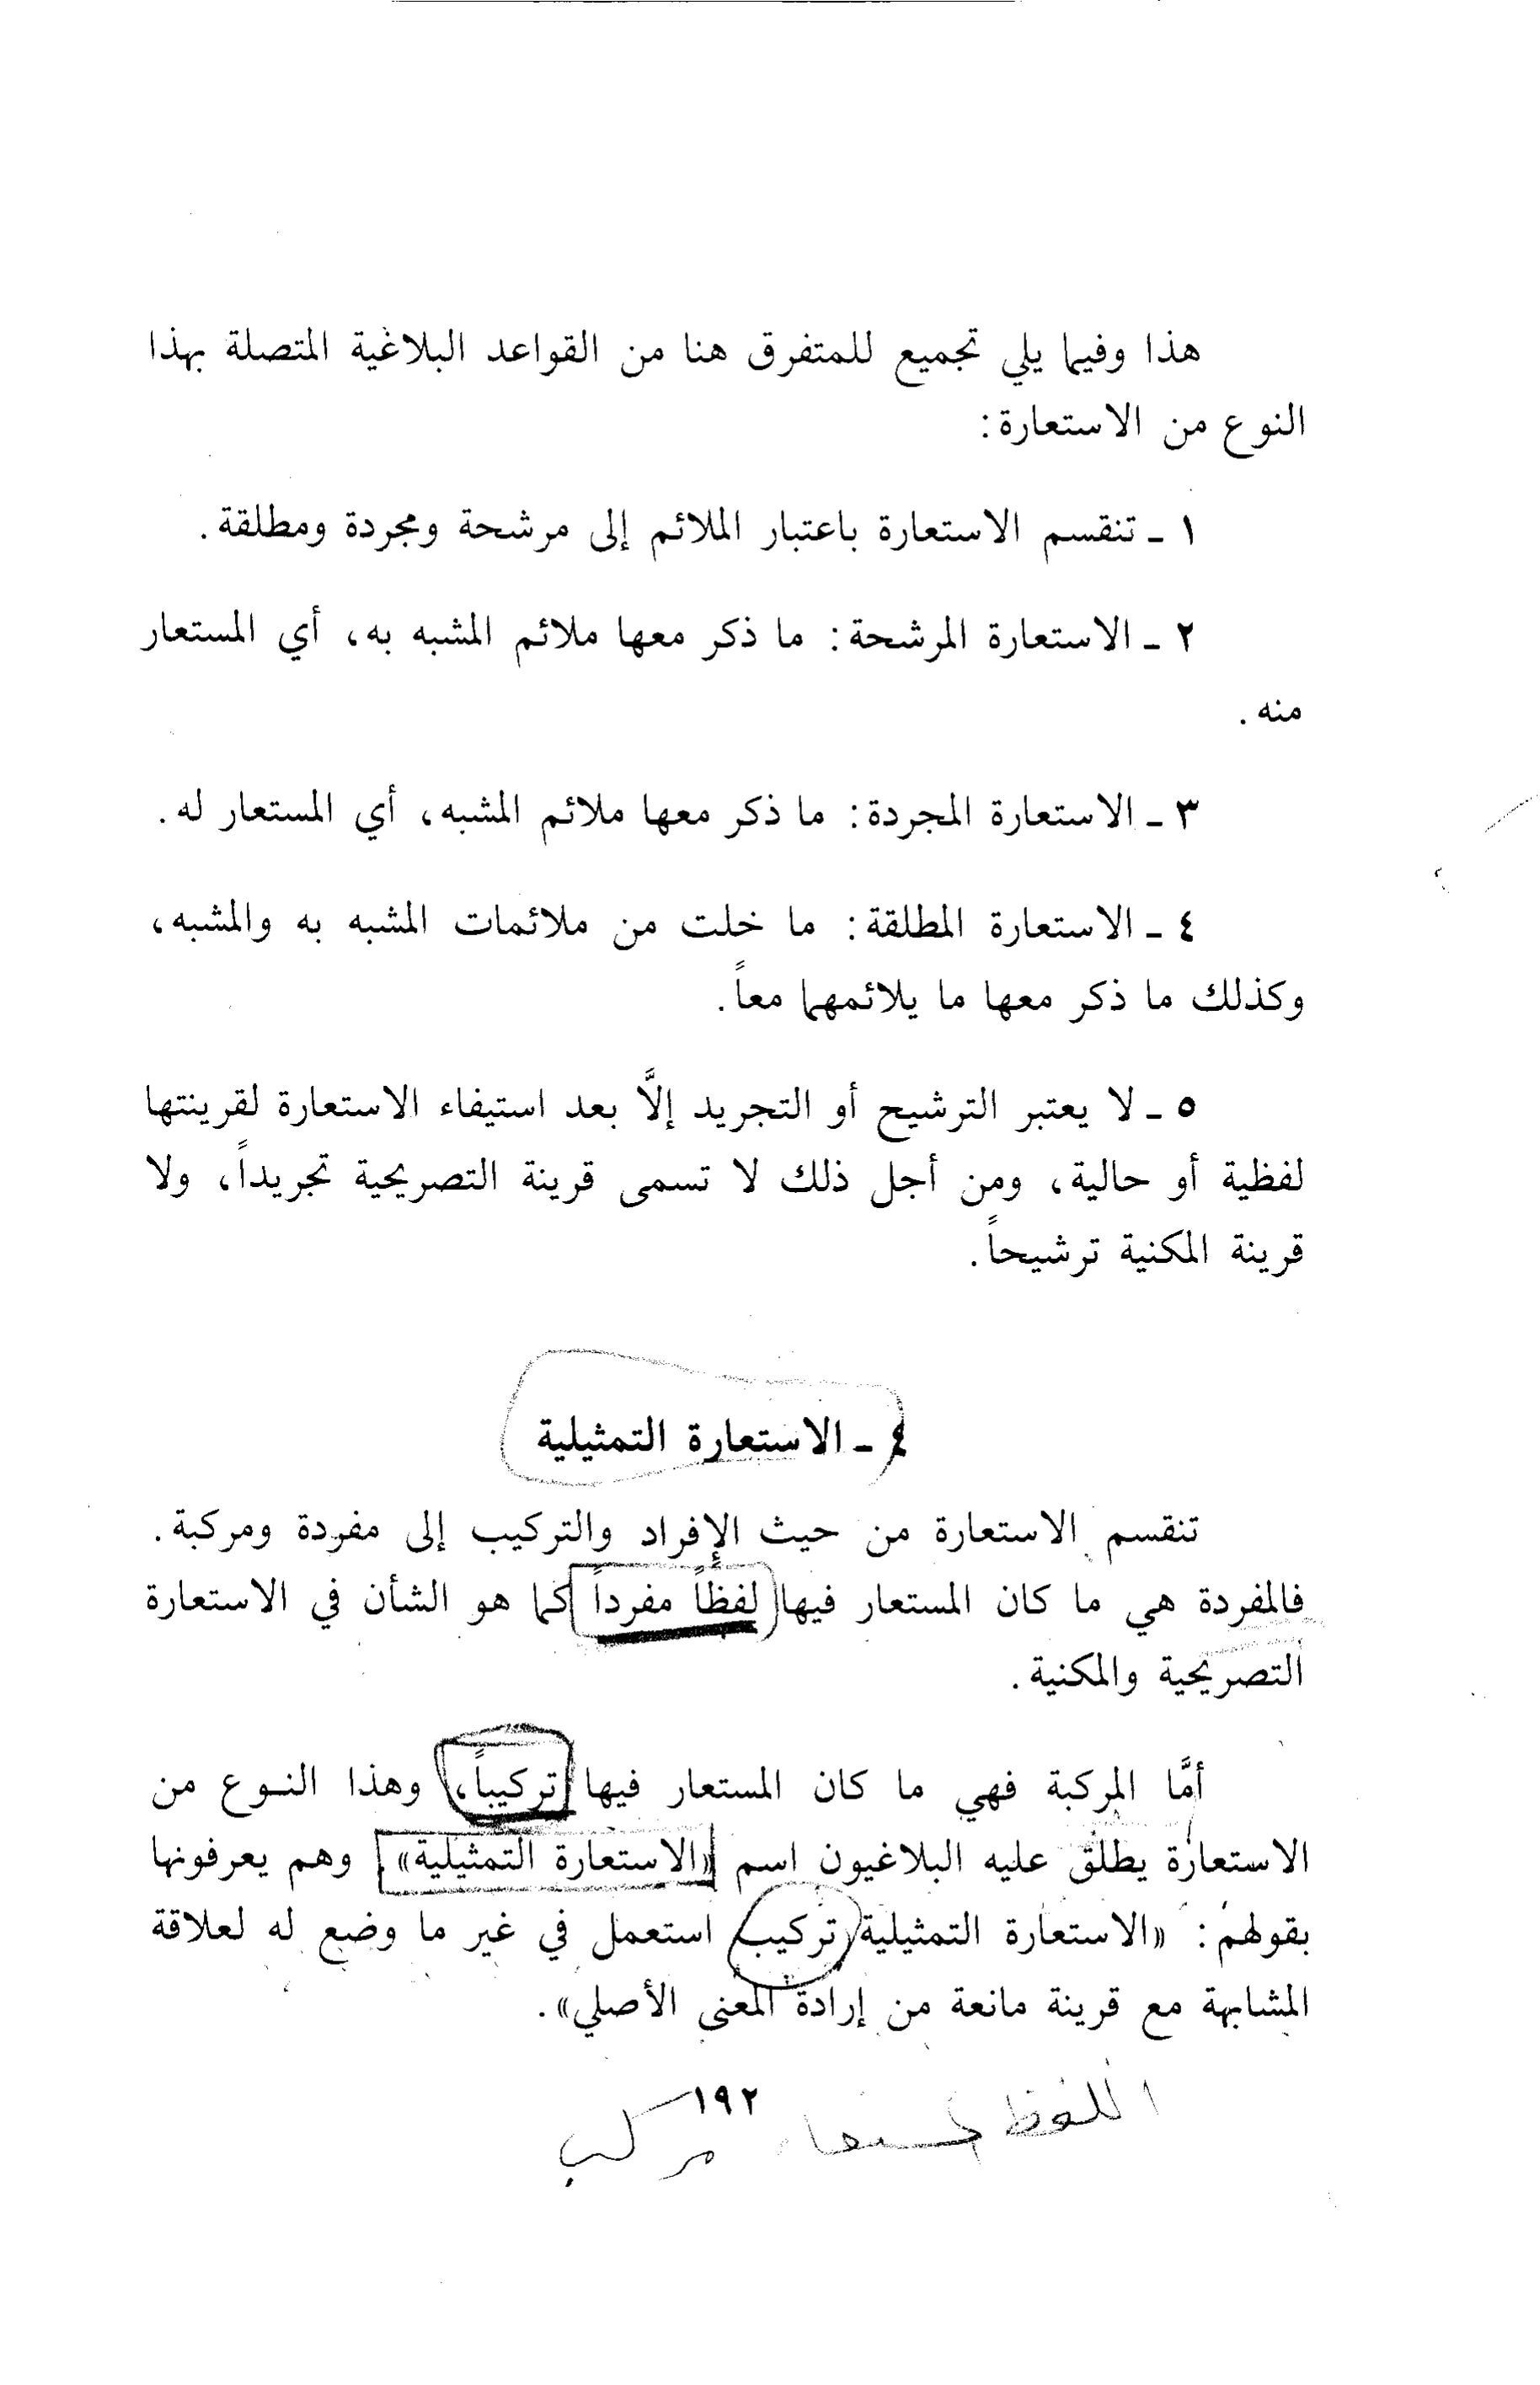 هذا وفيما يلي تجميع للمتفرق هنا من القواعد البلاغية المتصلة بهذا
النوع من الاستعارة:
١ ـ تنقسم الاستعارة باعتبار الملائم إلى مرشحة ومجردة ومطلقة.
٢ ـ الاستعارة المرشحة: ما ذكر معها ملائم المشبه به، أي المستعار
منه.
٣ ـ الاستعارة المجردة: ما ذكر معها ملائم المشبه، أي المستعار له.
٤ ـ الاستعارة المطلقة: ما خلت من ملائمات المشبه به والمشبه،
وكذلك ما ذكر معها ما يلائمهما معاً.
٥ ـ لا يعتبر الترشيح أو التجريد إلَّا بعد استيفاء الاستعارة لقرينتها
لفظية أو حالية، ومن أجل ذلك لا تسمى قرينة التصريحية تجريداً، ولا
قرينة المكنية ترشيحاً.
٤ ـ الاستعارة التمثيلية
تنقسم الاستعارة من حيث الإفراد والتركيب إلى مفردة ومركبة.
فالمفردة هي ما كان المستعار فيها لفظاً مفرداً كما هو الشأن في الاستعارة
التصريحية والمكنية.
أمَّا المركبة فهي ما كان المستعار فيها تركيباً، وهذا النوع من
الاستعارة يطلق عليه البلاغيون اسم «الاستعارة التمثيلية». وهم يعرفونها
بقولهم: «الاستعارة التمثيلية تركيب استعمل في غير ما وضع له لعلاقة
المشابهة مع قرينة مانعة من إرادة المعنى الأصلي».
١٩٢
اللفظ المستعار مركب